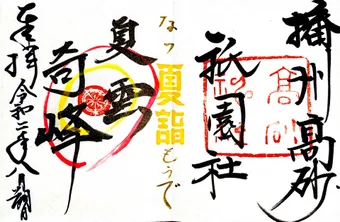 播州高砂
祇園社
なつ夏詣もうで
夏雲
奇峰
奉拝 令和二年八月朔日